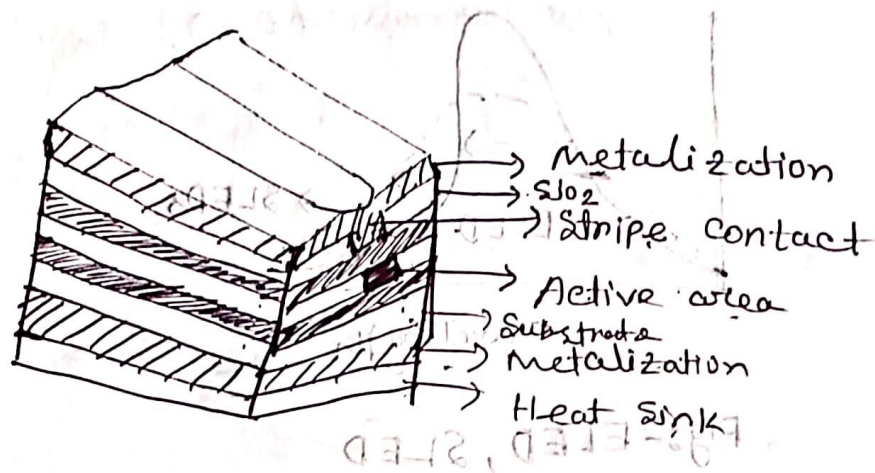 Metalization
SiO2
Stripe contact
Active area
Substrate
Metalization
Heat Sink
Fig:- ELED, SLED